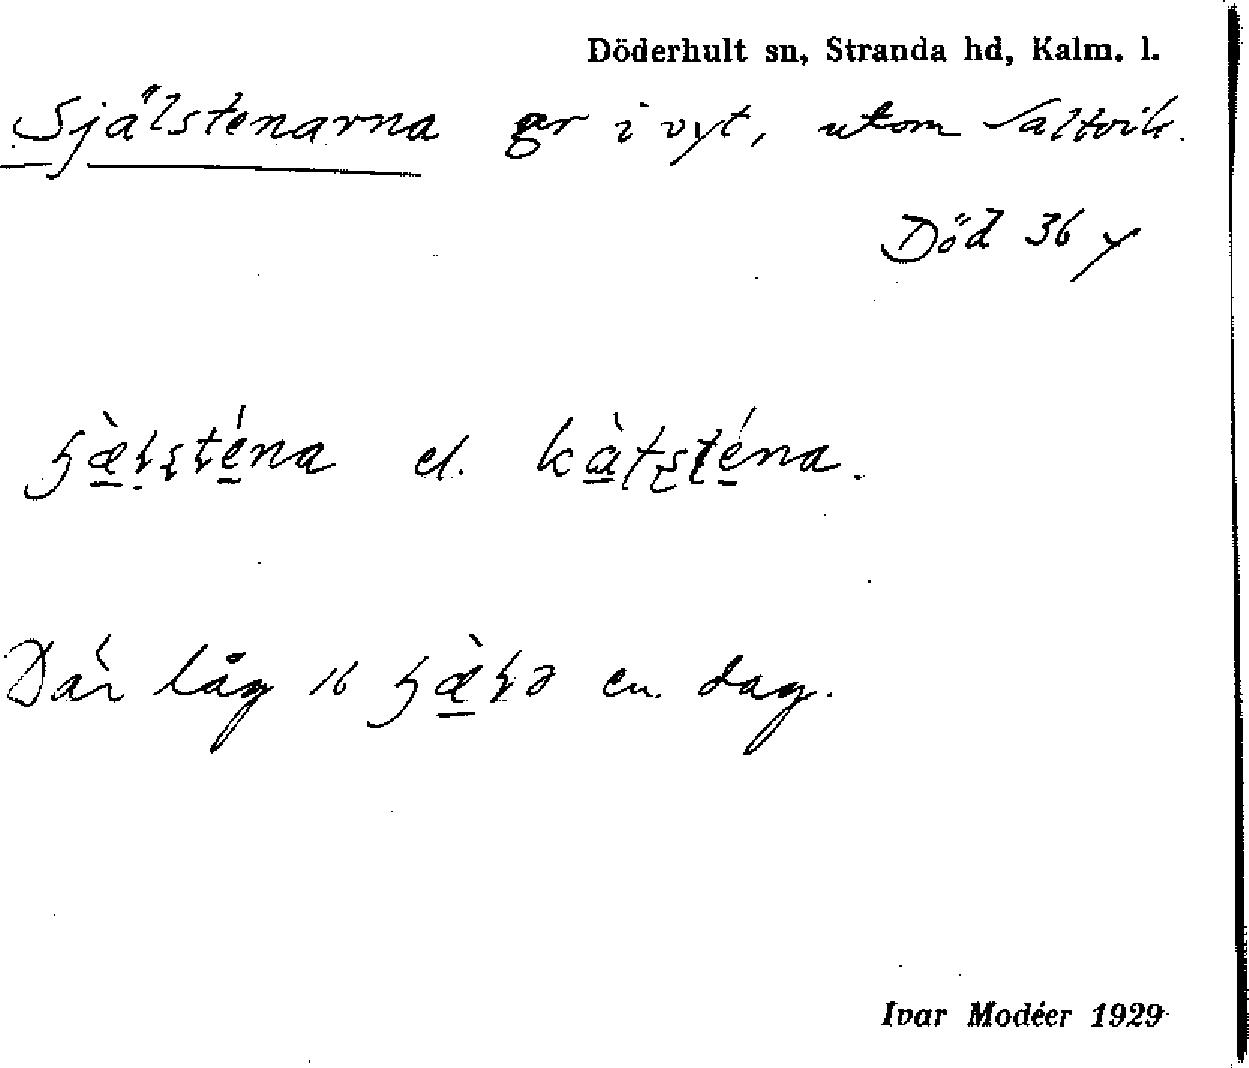 Döderhult sn, Stranda hd, Kalm. l.
Själstenarna gr i vyt, utom Saltvik.
Död 36 y
el.
Där låg 16 en dag.
Ivar Modéer 1929